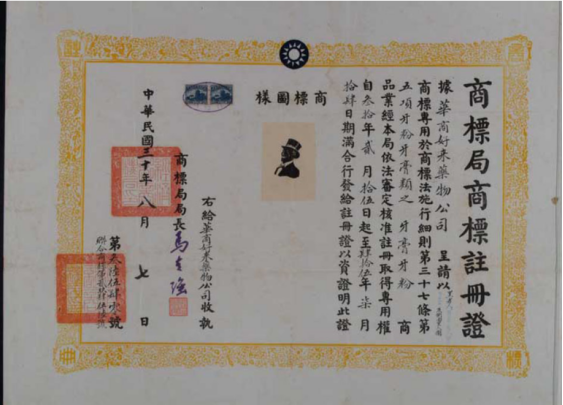 商標局商標註冊證
據華商好來藥物公司呈請以
商標專用於商標法施行細則第三十七條第
五項牙粉牙膏類之牙膏牙粉商
品業經本局依法審定核准註冊取得專用權
自叁拾年貳月拾伍日起至肆拾伍年柒月
拾肆日期滿合行發給註冊證以資證明此證
商標圖樣
右給華商好來藥物公司收執
商標局局長
中華民國三十年八月七日